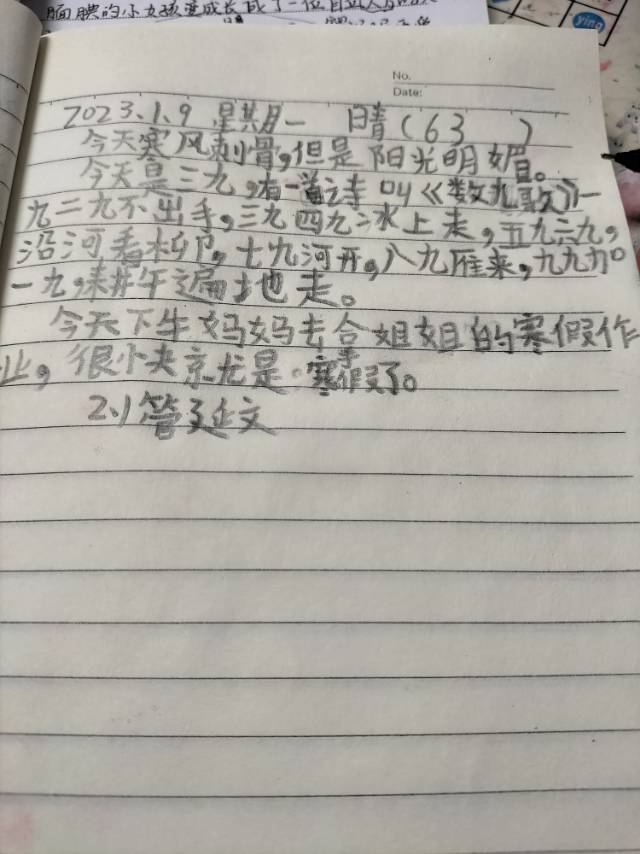 腼腆的小女孩变成长成了一位自
No.
Date:
ying
2023.1.9 星期一 晴(63 )
今天寒风刺骨,但是阳光明媚。
今天是三九,有一首诗叫《数九歌》一
九二九不出手,三九四九冰上走,五九六九,
沿河看柳,七九河开,八九雁来,九九加
一九,耕牛遍地走。
今天下午妈妈去合姐姐的寒假作
业,很小夬京尤是寒假了。
2.1 管延文